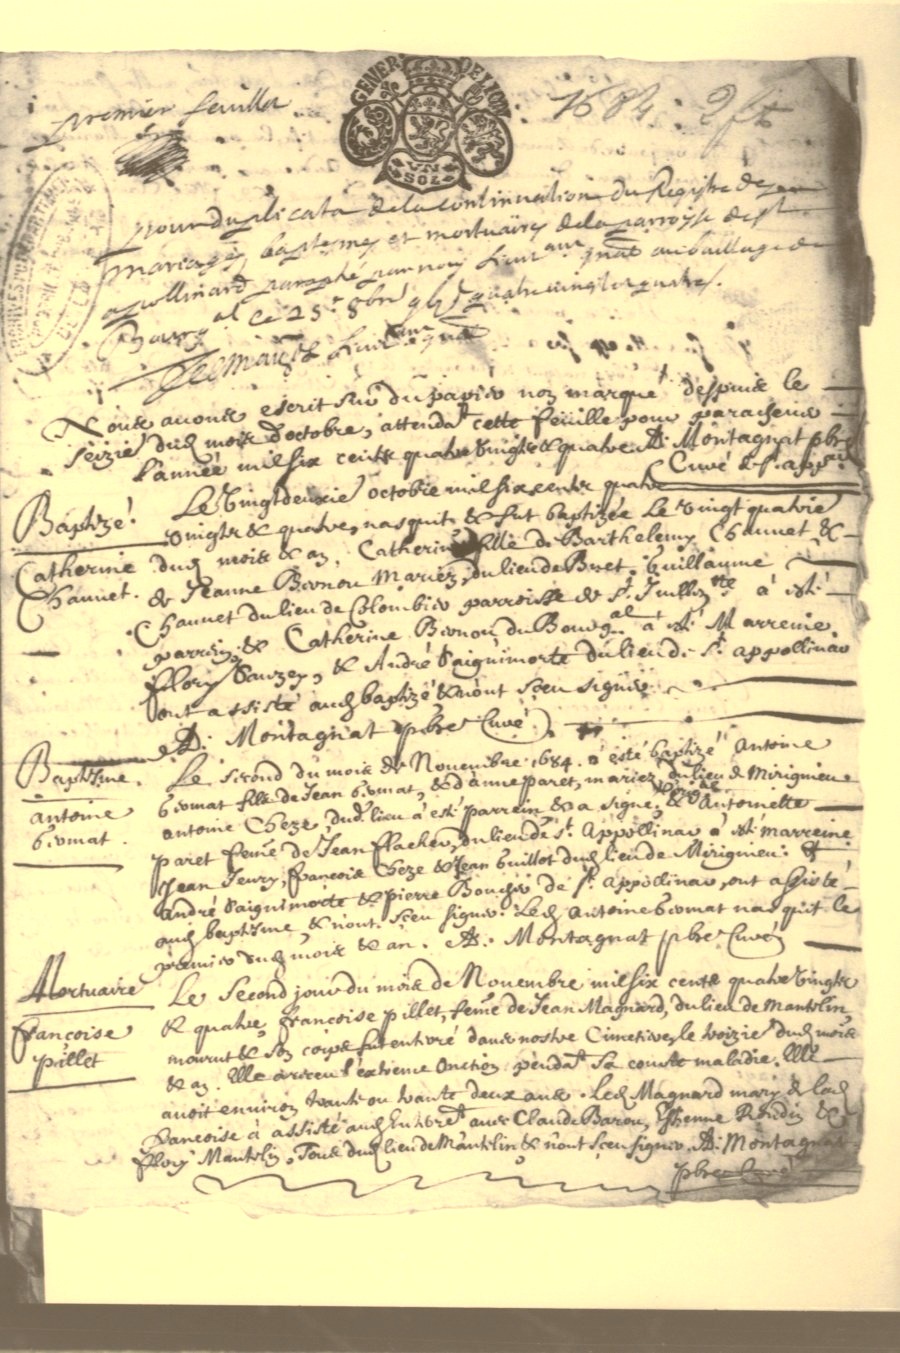 premier feuillet
GENER DE LYON
1684
UN SOL
pour duplicata de la continuation du Registre des
mariages, baptemes et mortuaires de la parroisse de st
apollinard paraphé par nous Lieut au bailliage de
Bourg ce 25e 8bre quatre vingt quatre.
Nous auons escrit sur du papier non marqué despuis le
seizie dud mois d'octobre, attendat cette feuille pour paracheuer
l'année mil six cents quatre vingts & quatre A. Montagnat pbre
Curé de St app.
Baptizé.
Catherine
Chauuet.
Le vingt deuxie octobre mil six cents quatre
vingts & quatre, nasquit & fut baptizée le vingt quatrie
dud mois & an Catherine fille de Barthelemy Chauuet &
de Jeanne Bonnou Mariez, du lieu de Buet. Guillaume
Chauuet du lieu de Colombier parroisse de St Jullin à esté
parrein & Catherine Bonnou du Bourg à esté Marreine
fflory Sauzey, & André Saiguimorte du lieu de St appollinar
ont assisté aud baptizé & n'ont sceu signer
A. Montagnat pbre Curé.
Baptisme.
antoine
Gromat.
Le second du mois de Nouembre 1684. a esté baptizé Antoine
Gromat fils de Jean Gromat, & d'anne paret, mariez du lieu de Mirignieu
antoine Cheze dud. lieu à esté parrein & a signé, & Antoinette
paret feme de Jean fflacher, du lieu de St. Appollinar à esté marreine
Jean Jeury, françois Cheze & Jean Guillot dud lieu de Mirignieu: &
André Saiguimorte & pierre Bouchié de St appollinar, ont assisté
aud baptisme & n'ont sceu signer. Led Antoine Gromat nasquit le
premier dud mois & an. A. Montagnat pbre Curé
Mortuaire
françoise
pillet
Le Second jour du mois de Nouembre mil six cents quatre vingts
& quatre, françoise pillet, feme de Jean Magnard, du lieu de Mantelin
mourut & son corps fut enterré dans nostre Cimetiere le troizie dud mois
& an. Elle à receu l'extreme Onction pendat sa courte maladie. Elle
auoit enuiron trante ou trante deux ans. Led Magnard mary de lad
francoise à assisté aud Enterrt auec Claude Baron, Estienne Rondin &
fflory Mantelin, Tous dud lieu de Mantelin & n'ont sceu signer A. Montagnat
pbre Curé